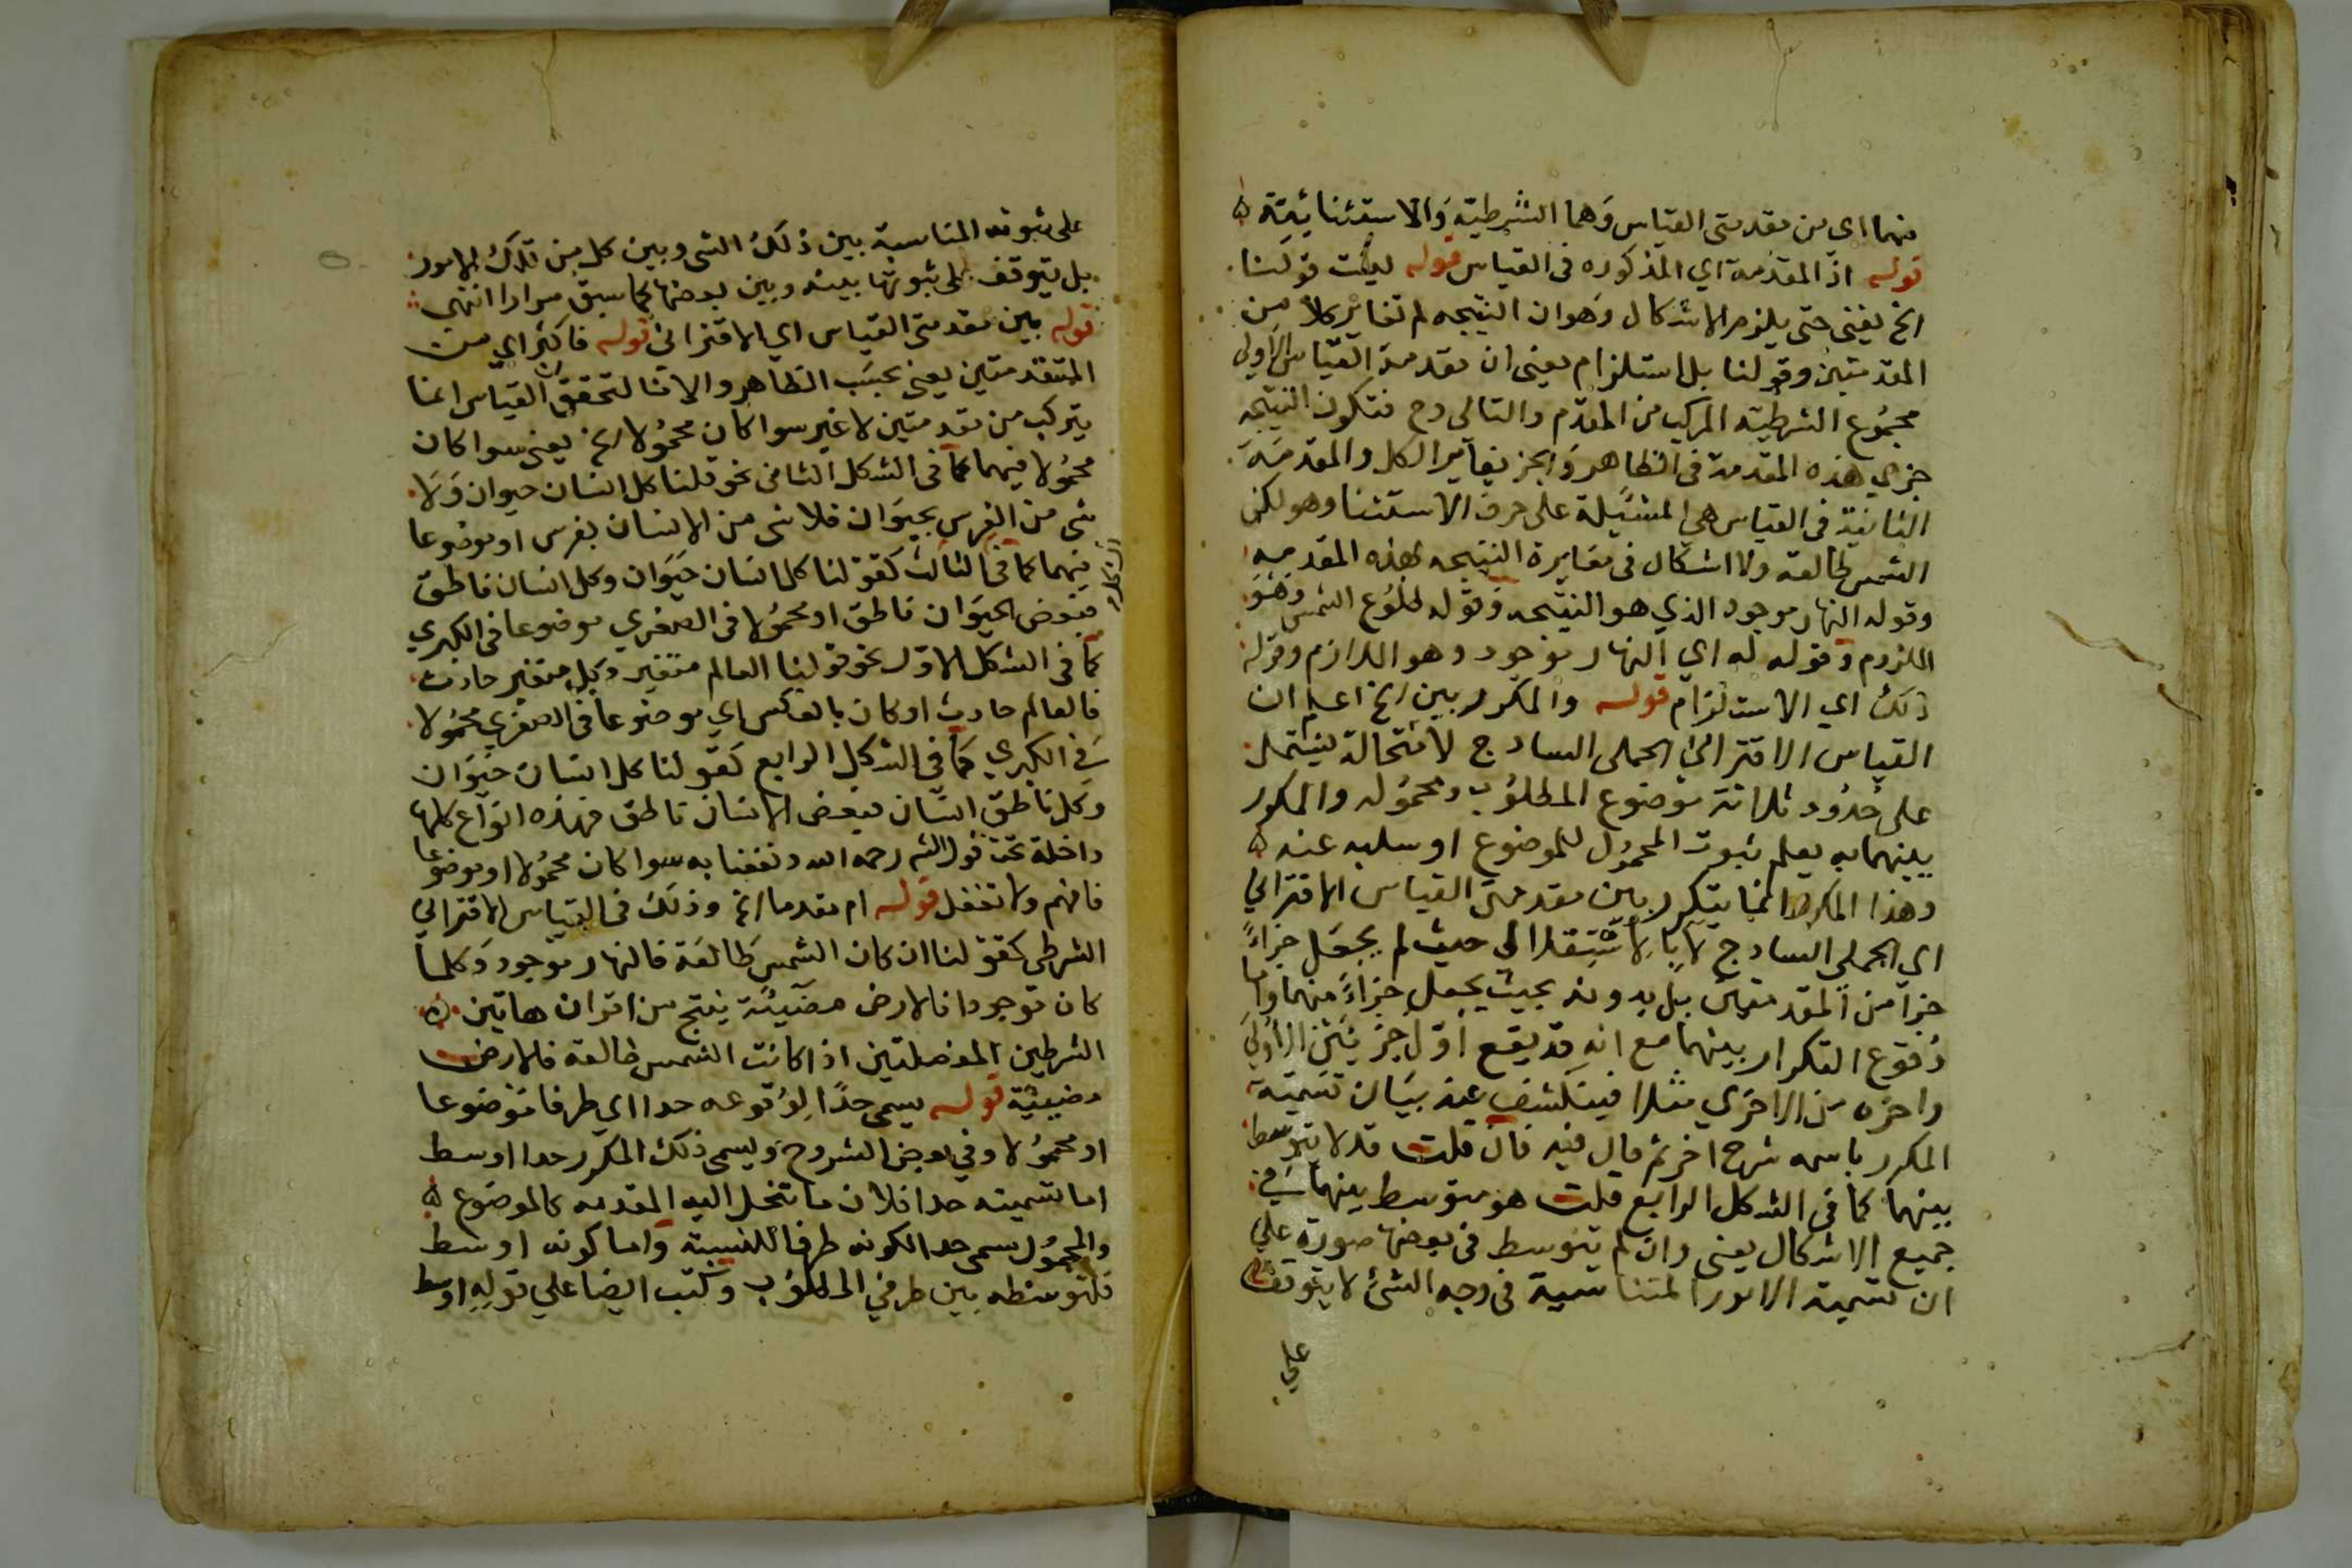 منهما اى من مقدمتى القياس وَهما الشرطيّة وَالاستثنائيّة ه
قوله اذ المقدّمة اي المذكوره فى القياس قوله ليست قولنا
الخ يعنى حتى يلزم الاشكال وَهو ان النتيجه لم تغاير كلا من
المقدمتين وقولنا بل استلزام يعنى ان مقدمة القياس الاولى
مجمُوع الشرطيّة المركب من المقدّم والتالى وح فتكون النتيجه
جزي هذه المقدمة فى الظاهر وَالجز يغاير الكل والمقدمَة
الثانية فى القياس هي المشتملة على حرف الاستثنا وهو لكن
الشمس طالعة ولا اشكال فى مغايرة النتيجه لهذه المقدمه
وقوله النهار موجود الذي هو النتيجه وَقوله طلوُع الشمس وَهوَ
الملزوم وَقوله له اي النهار موجود وهو اللازم وقوله
ذلك اي الاستلزام قوله والمكرر بين الخ اعلم ان
القياس الاقترانى الحملى السادج لا محالة يشتمل
على حُدُود ثلاثة موضوع المطلوُب ومحموُله والمكرر
بينهما به يعلم ثبوت المحموُل للموضوع او سلبه عنه ه
وهذا المكرر انما يتكرر بين مقدمتى القياس الاقترانى
اي الحملى السادج لا بالاستقلال حيث لم يجعَل جزاءً
جزا من المقدمتين بل بدونه بحيث يجعل جزاءً منهما واما
وُقوع التكرار بينهما مع انه قد يقع اوّل جز من الاولى
واخره من الاخري مثلا فينكشف عند بيَان تسمية
المكرر باسمه شرح اخر ثم قال فيه فان قلت قد لا يتوسط
بينهما كما فى الشكل الرابع قلت هو متوسط بينهما في
جميع الاشكال يعنى وان لم يتوسط فى بعضها صورة على
ان تسمية الامور المتناسبة فى وجه الشئ لا يتوقف
على
على ثبوت المناسبة بين ذلكَ الشى وبين كل من تلكَ الامور
بل يتوقف على ثبوتها بينه وبين بعضها كما سبق مرارا انتهى
قوله بين مقدمتى القياس اي الاقترانى قوله فاكثر اي من
المتقدمتين يعنى بحسَب الظاهر والا فالتحقيق ان القياس انما
يتركب من مقدمتين لا غير سوا كان محموُلا الخ يعنى سوا كان
محموُلا فيهما كما فى الشكل الثانى نحو قلنا كل انسان حيوان وَلا
شى من الفرس بحيوَان فلا شى من الانسان بفرس او موضوعا
فيهما كما فى الثالث كقولنا كل انسان حيَوان وكل انسان ناطق
فبعض الحيوَان ناطق او محموُلا فى الصغري موضوعا فى الكبري
كما فى الشكل الاوّل نحو قولنا العالم متغير وكل متغير حادث
فالعالم حادث او كان بالعكس اي موضوعا فى الصغري محموُلا
فِى الكبري كما فى الشكل الرابع كقولنا كل انسان حيوَان
وكل ناطق انسان فبعض الانسان ناطق فهذه انواع كلها
داخلة تحت قول الشم رحمه الله ونفعنا به سوا كان محموُلا او موضوعا
فافهم ولا تغفل قوله ام مقدما الخ وذلكَ فى القياس الاقترانى
الشرطى كقولنا ان كان الشمس طالعَة فالنهار موجود وَكلما
كان موجودا فالارض مضيئة ينتج من اقتران هاتين ه
الشرطين المفصلتين اذا كانت الشمس طالعه فالارض
مضيئة قوله يسمى حدّا لِوُقوعه حدا اى طرفا موضوعا
او محموُلا وفي بعض الشروح وَيسمى ذلك المكرّر حدا اوسط
اما تسميته حدا فلان ما تنحل اليه المقدمه كالموضوع ه
والمحموُل يسمى حدا لكونه طرفا للنسبة وَاما كونه اوسط
فلتوسّطه بين طرفي المطلوُب وَكتب ايضا علي قوله اوسط